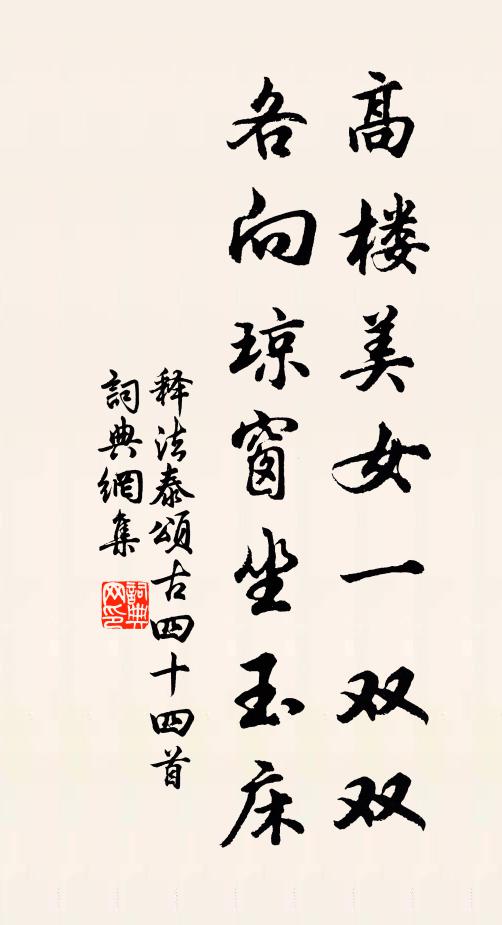 高楼美女一双双
各向琼窗坐玉床
释法泰頌古四十四首
詞典網集
詞典网印